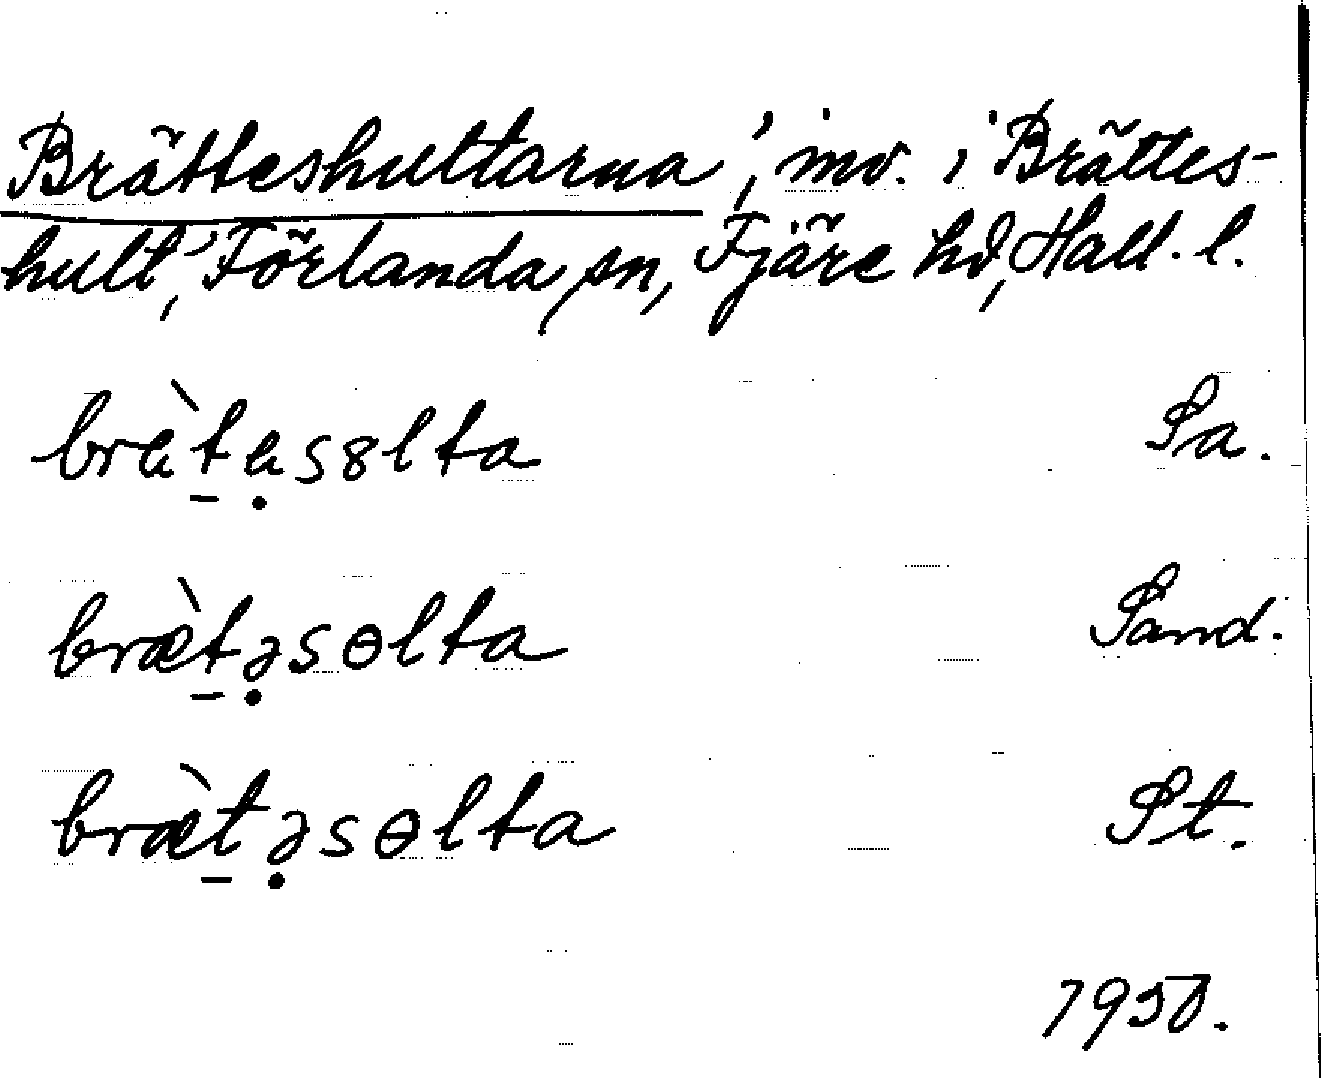 Brätteshultarna, 'inv. i Brättes-
hult', Förlanda sn, Fjäre hd, Hall. l.
brὰt̲ạsȣlta Sa.
bræ̀t̲ə̣sɵlta Sand.
bræ̀t̲ə̣sɵlta St.
1950.